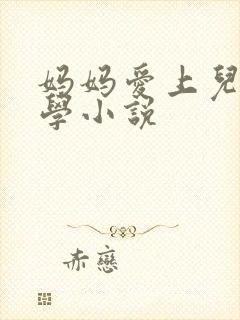 妈妈愛上兒
學小說
赤戀